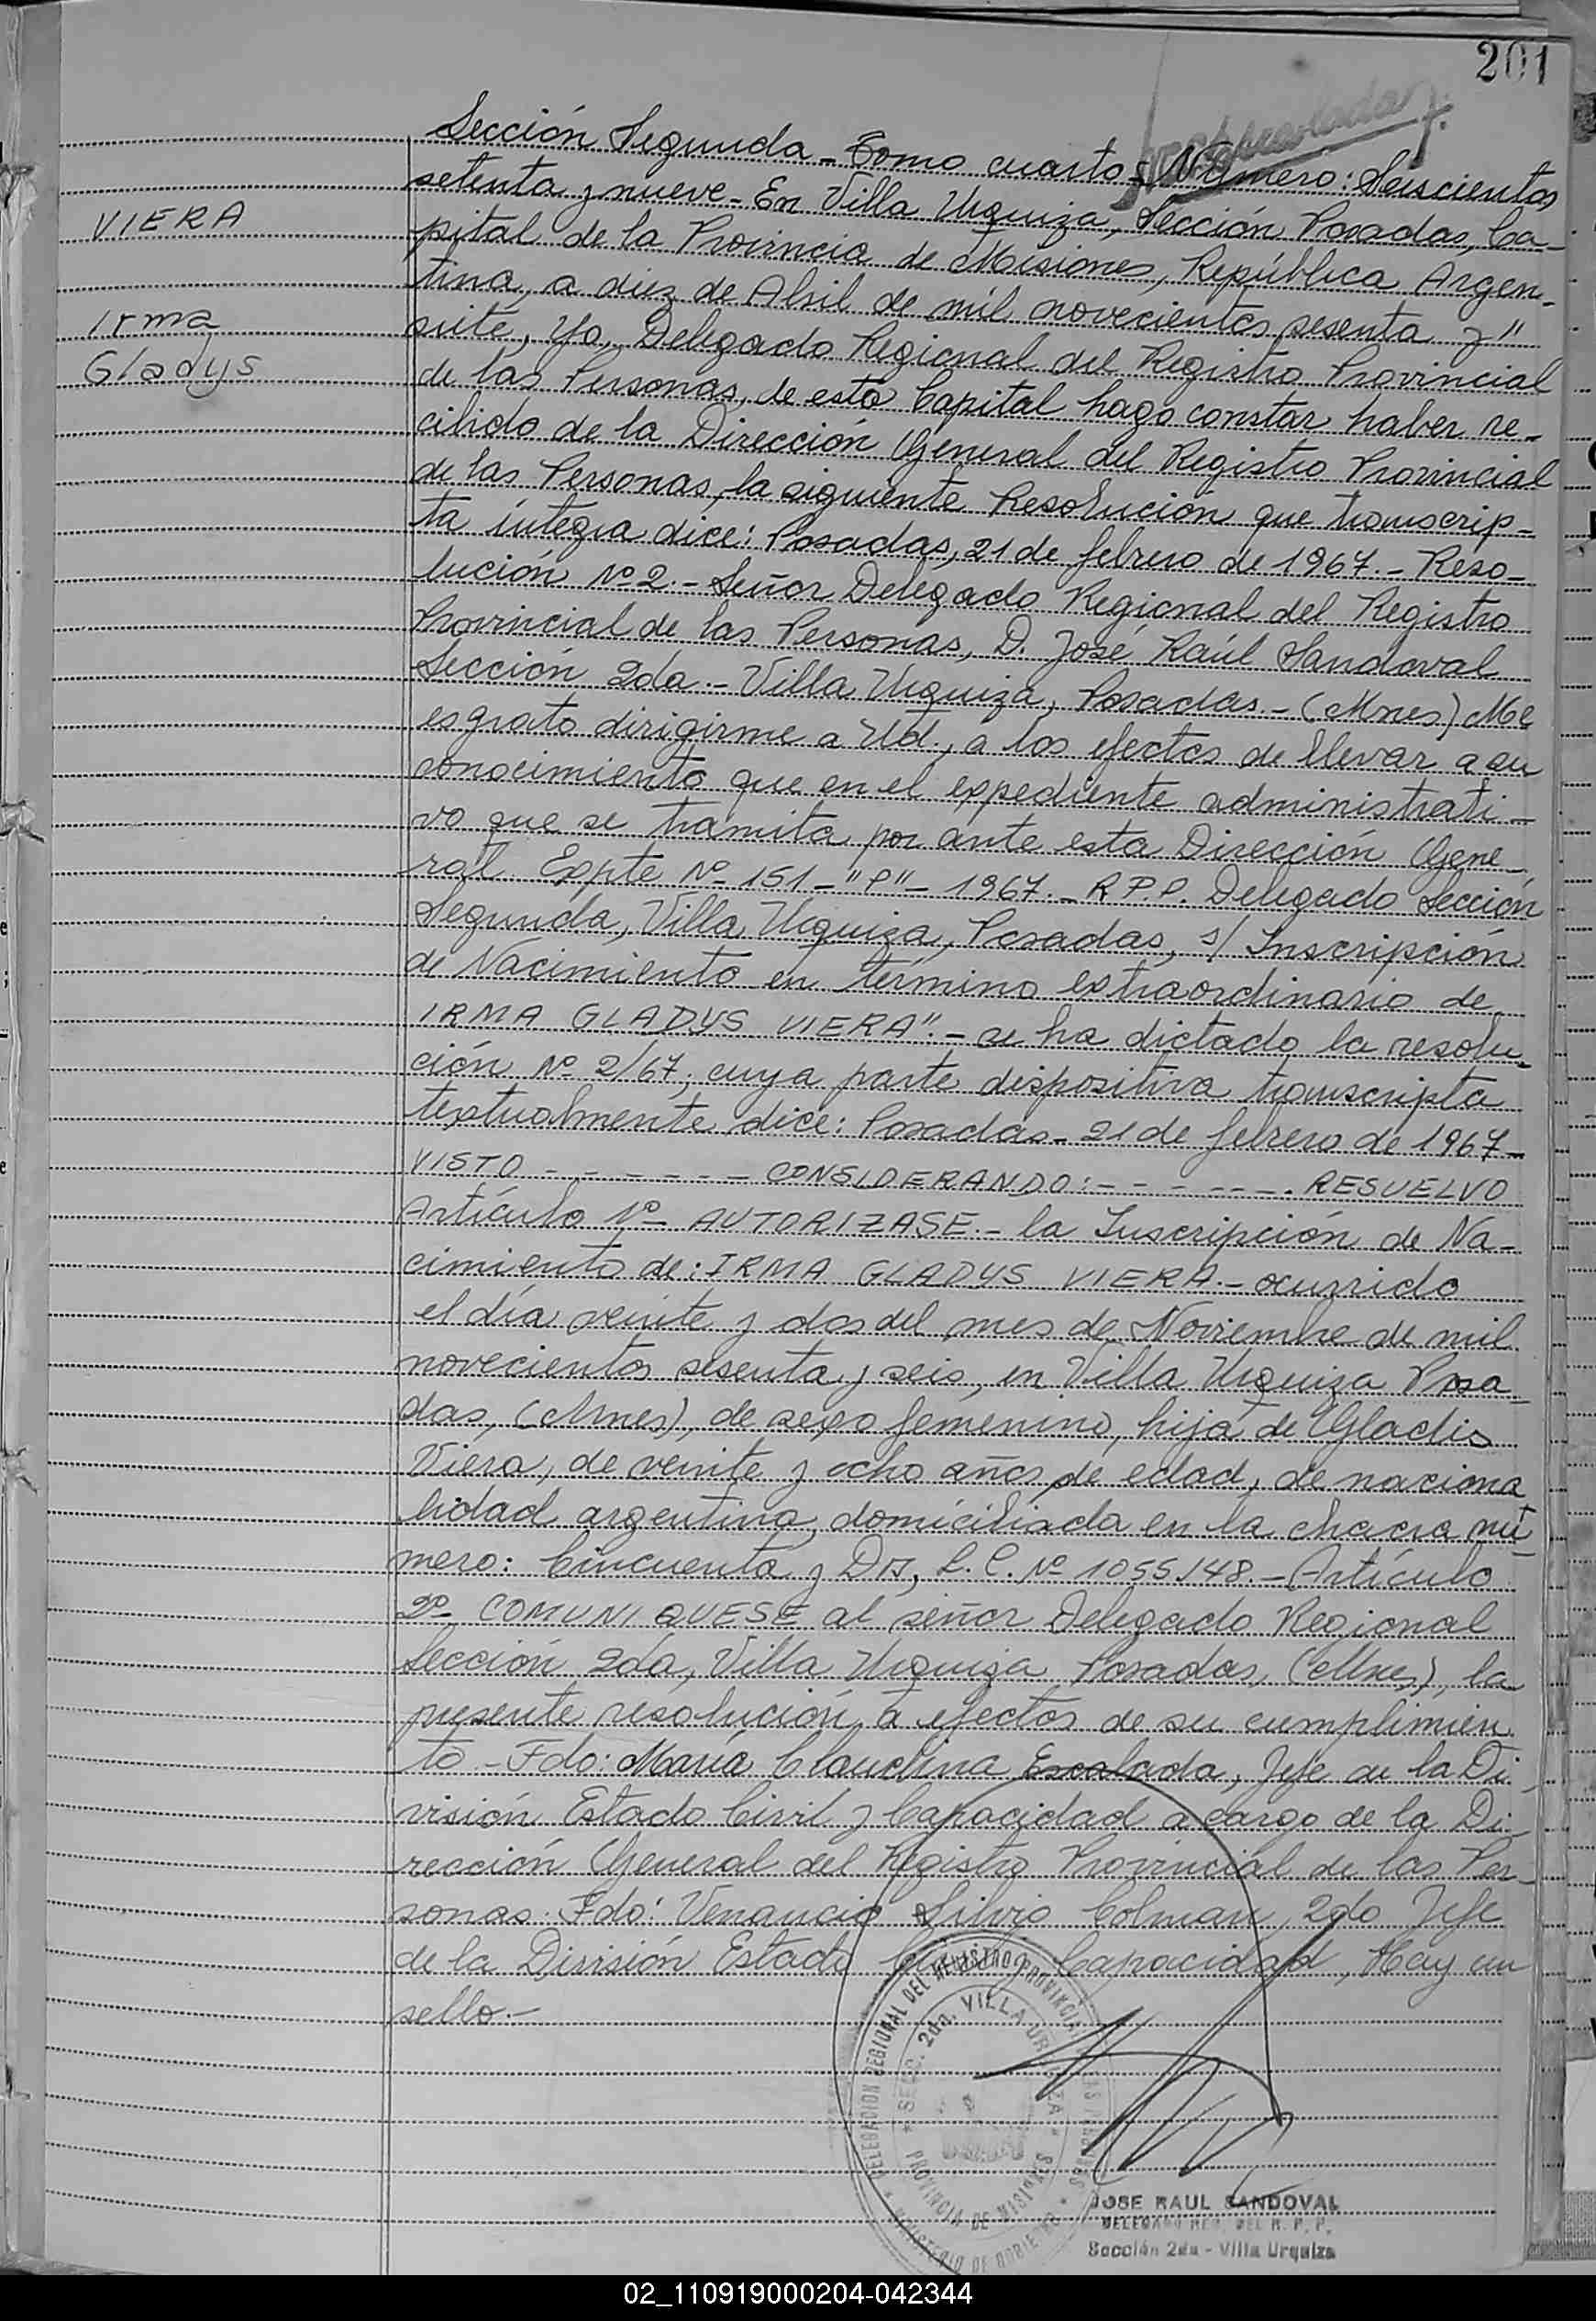 201
Sección Segunda - Tomo cuarto - Número: Seiscientos
setenta y nueve - En Villa Urquiza, Sección Posadas, Ca-
VIERA
pital de la Provincia de Misiones, República Argen-
tina, a diez de Abril de mil novecientos sesenta y "
Irma
siete, Yo, Delegado Regional del Registro Provincial
Gladys
de las Personas, de esta Capital hago constar haber re-
cibido de la Dirección General del Registro Provincial
de las Personas, la siguiente Resolución que transcrip-
ta íntegra dice: Posadas, 21 de febrero de 1967.- Reso-
lución Nº 2.- Señor Delegado Regional del Registro
Provincial de las Personas, D. José Raúl Sandoval
Sección 2da.- Villa Urquiza, Posadas.- (Mnes) Me
es grato dirigirme a Ud., a los efectos de llevar a su
conocimiento que en el expediente administrati-
vo que se tramita por ante esta Dirección Gene-
ral Expte Nº 151 - "P" - 1967.- R.P.P. Delegado Sección
Segunda, Villa Urquiza, Posadas, s/ Inscripción
de Nacimiento en término extraordinario de
IRMA GLADYS VIERA".- se ha dictado la resolu-
ción Nº 2/67, cuya parte dispositiva transcripta
textualmente dice: Posadas - 21 de febrero de 1967-
VISTO - - - - - - - CONSIDERANDO: - - - - - - . RESUELVO
Artículo 1º- AUTORIZASE.- la Inscripción de Na-
cimiento de: IRMA GLADYS VIERA.- ocurrido
el día veinte y dos del mes de Noviembre de mil
novecientos sesenta y seis, en Villa Urquiza Posa-
das, (Mnes), de sexo femenino, hija de Gladis
Viera, de veinte y ocho años de edad, de naciona
lidad argentina, domiciliada en la chacra nú-
mero: Cincuenta y Dos, L.C. Nº 1055148.- Artículo
2º- COMUNIQUESE al señor Delegado Regional
Sección 2da, Villa Urquiza Posadas, (Mnes), la
presente resolución a efectos de su cumplimien
to - Fdo: María Claudina Escalada, Jefe de la Di-
visión Estado Civil y Capacidad a cargo de la Di-
rección General del Registro Provincial de las Per-
sonas. Fdo: Venancio Silvio Colman, 2do Jefe
de la División Estado Civil y Capacidad, Hay un
sello.-
DELEGACION REGIONAL DEL REGISTRO PROVINCIAL
SECC. 2da. VILLA URQUIZA
PROVINCIA DE MISIONES
MINISTERIO DE GOBIERNO
JOSE RAUL SANDOVAL
DELEGADO REG. DEL R. P. P.
Sección 2da - Villa Urquiza
02_110919000204-042344